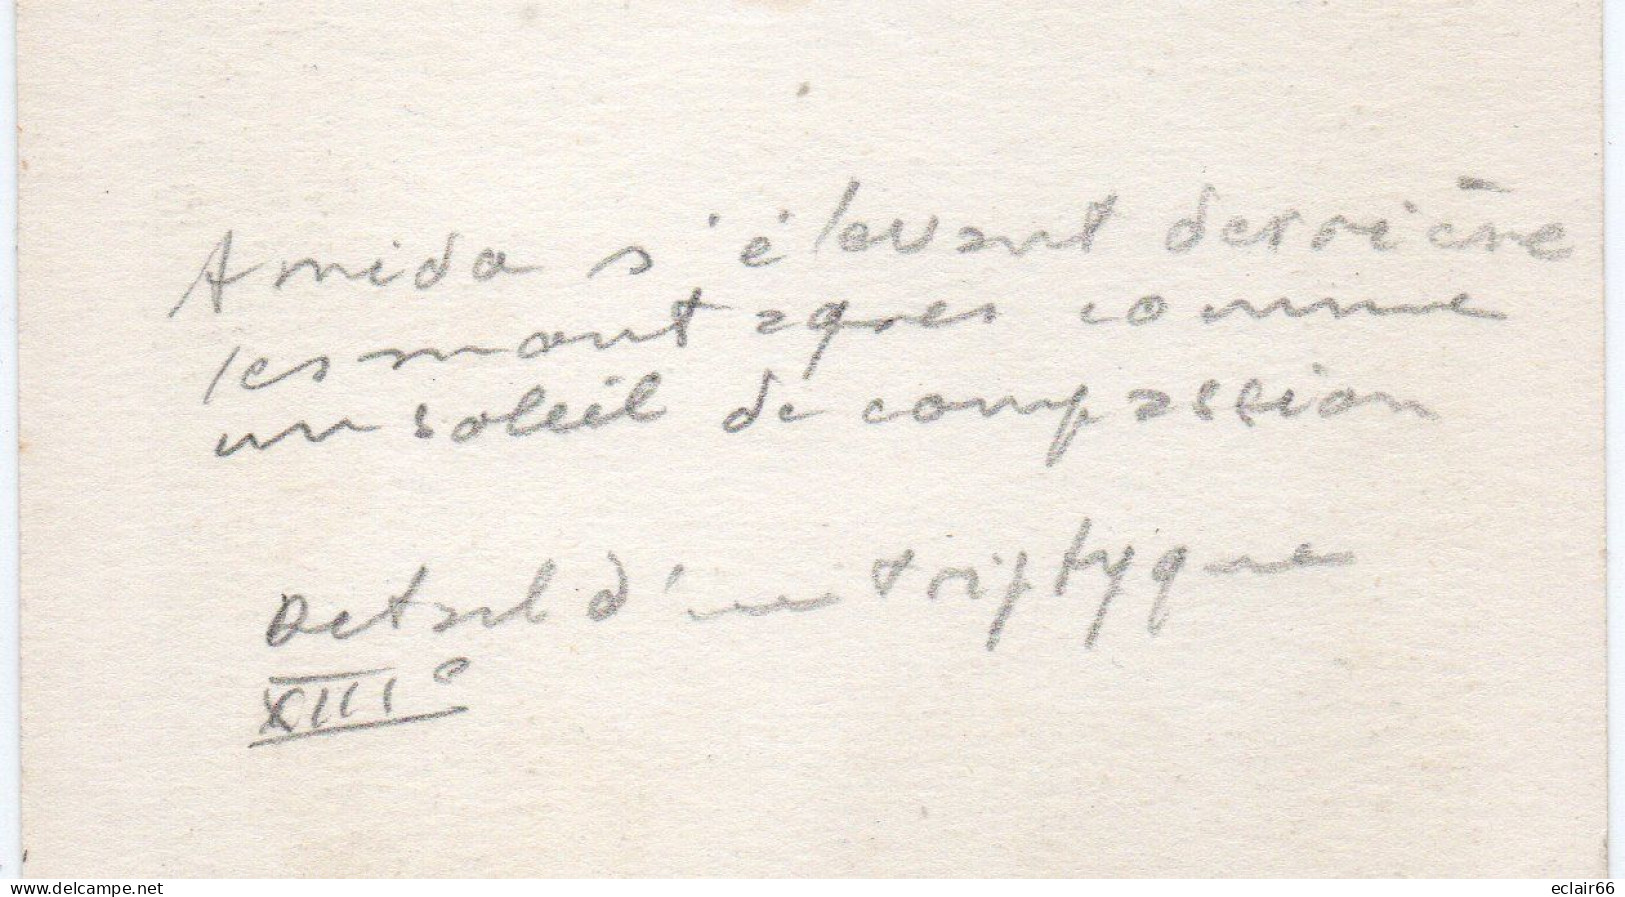 Amida s'élevant derrière
les montagnes comme
un soleil de compassion
Detail d'un triptyque
XIIIe
www.delcampe.net
eclair66